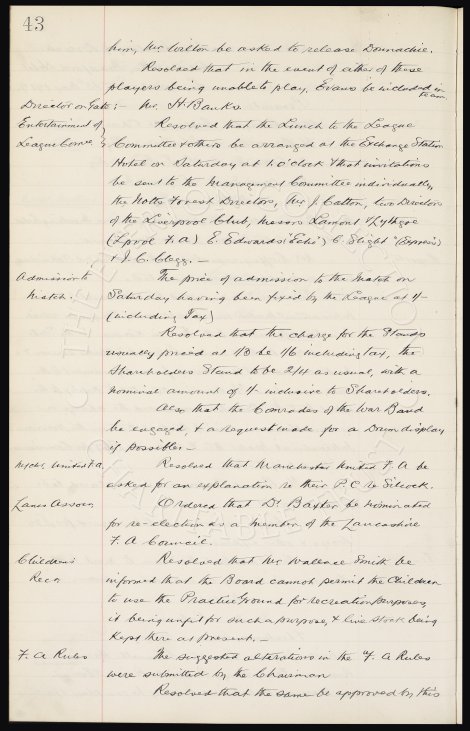 43
him, Mr Wilton be asked to release Donnachie.
Resolved that in the event of either of these
players being unable to play, Evans be included in
team
Director on Gate :- Mr. H. Banks.
Entertainment of Resolved that the Lunch to the League
League Comee. Committee & others be arranged at the Exchange Station
Hotel on Saturday at 1 o'clock & that invitations
be sent to the Management Committee individually,
the Notts Forest Directors, Mr J. Catton, two Directors
of the Liverpool Club, Messrs Lamont & Lythgoe
(Lpool F.A) E. Edwards "Echo") C. Slight "(Express)
& J. C. Clegg. -
Admission to The price of admission to the Match on
Match. Saturday having been fixed by the League at 1/-
(including Tax)
Resolved that the charge for the Stands
usually priced at 1/3 be 1/6 including tax, the
Shareholders Stand to be 2/4 as usual, with a
nominal amount of 1/- inclusive to Shareholders.
Also that the Comrades of the War Band
be engaged, & a request made for a Drum display
if possible. -
M/chr. United F.A. Resolved that Manchester United F.A be
asked for an explanation re their P.C re Silcock.
Lancs Assocn. Ordered that Dr Baxter be nominated
for re-election as a member of the Lancashire
F.A Council.
Children's Resolved that Mr Wallace Smith be
Recn. informed that the Board cannot permit the Children
to use the Practice Ground for recreation purposes,
it being unfit for such a purpose, & live stock being
kept there at present. -
F. A Rules The suggested alterations in the F. A Rules
were submitted by the Chairman
Resolved that the same be approved by this